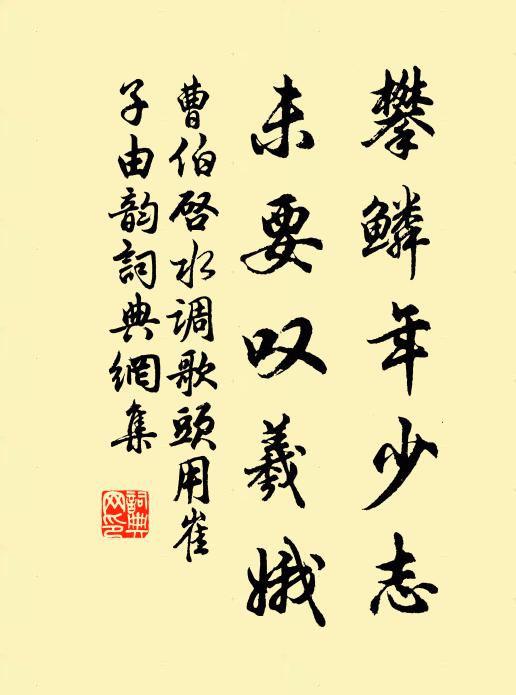 攀鳞年少志
未要叹羲娥
曹伯启水调歌頭用崔
子由韵詞典網集
詞典网印